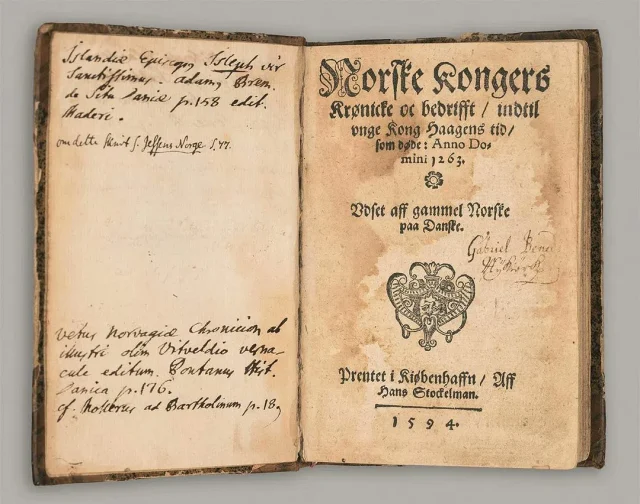 Islandiæ Episcop Isleph vir
Sanctissimus. adam, Brem.
de Situ Daniæ p. 158 edit.
Maderi.
om dette skrift s. Jessens Norge S. 77.
Vetus Norvagiæ Chronicion ab
illustri olim Vitveldio verna-
cule editum. Pontanus Hist.
Danica p. 176.
cf. Mollerus ad Bartholinum p. 18
Norske Kongers
Krønicke oc bedrifft / indtil
vnge Kong Haagens tid /
som døde: Anno Do-
mini 1263.
Vdset aff gammel Norske
paa Danske.
Gabriel
Prentet i Kiøbenhaffn / Aff
Hans Stockelman.
1594.